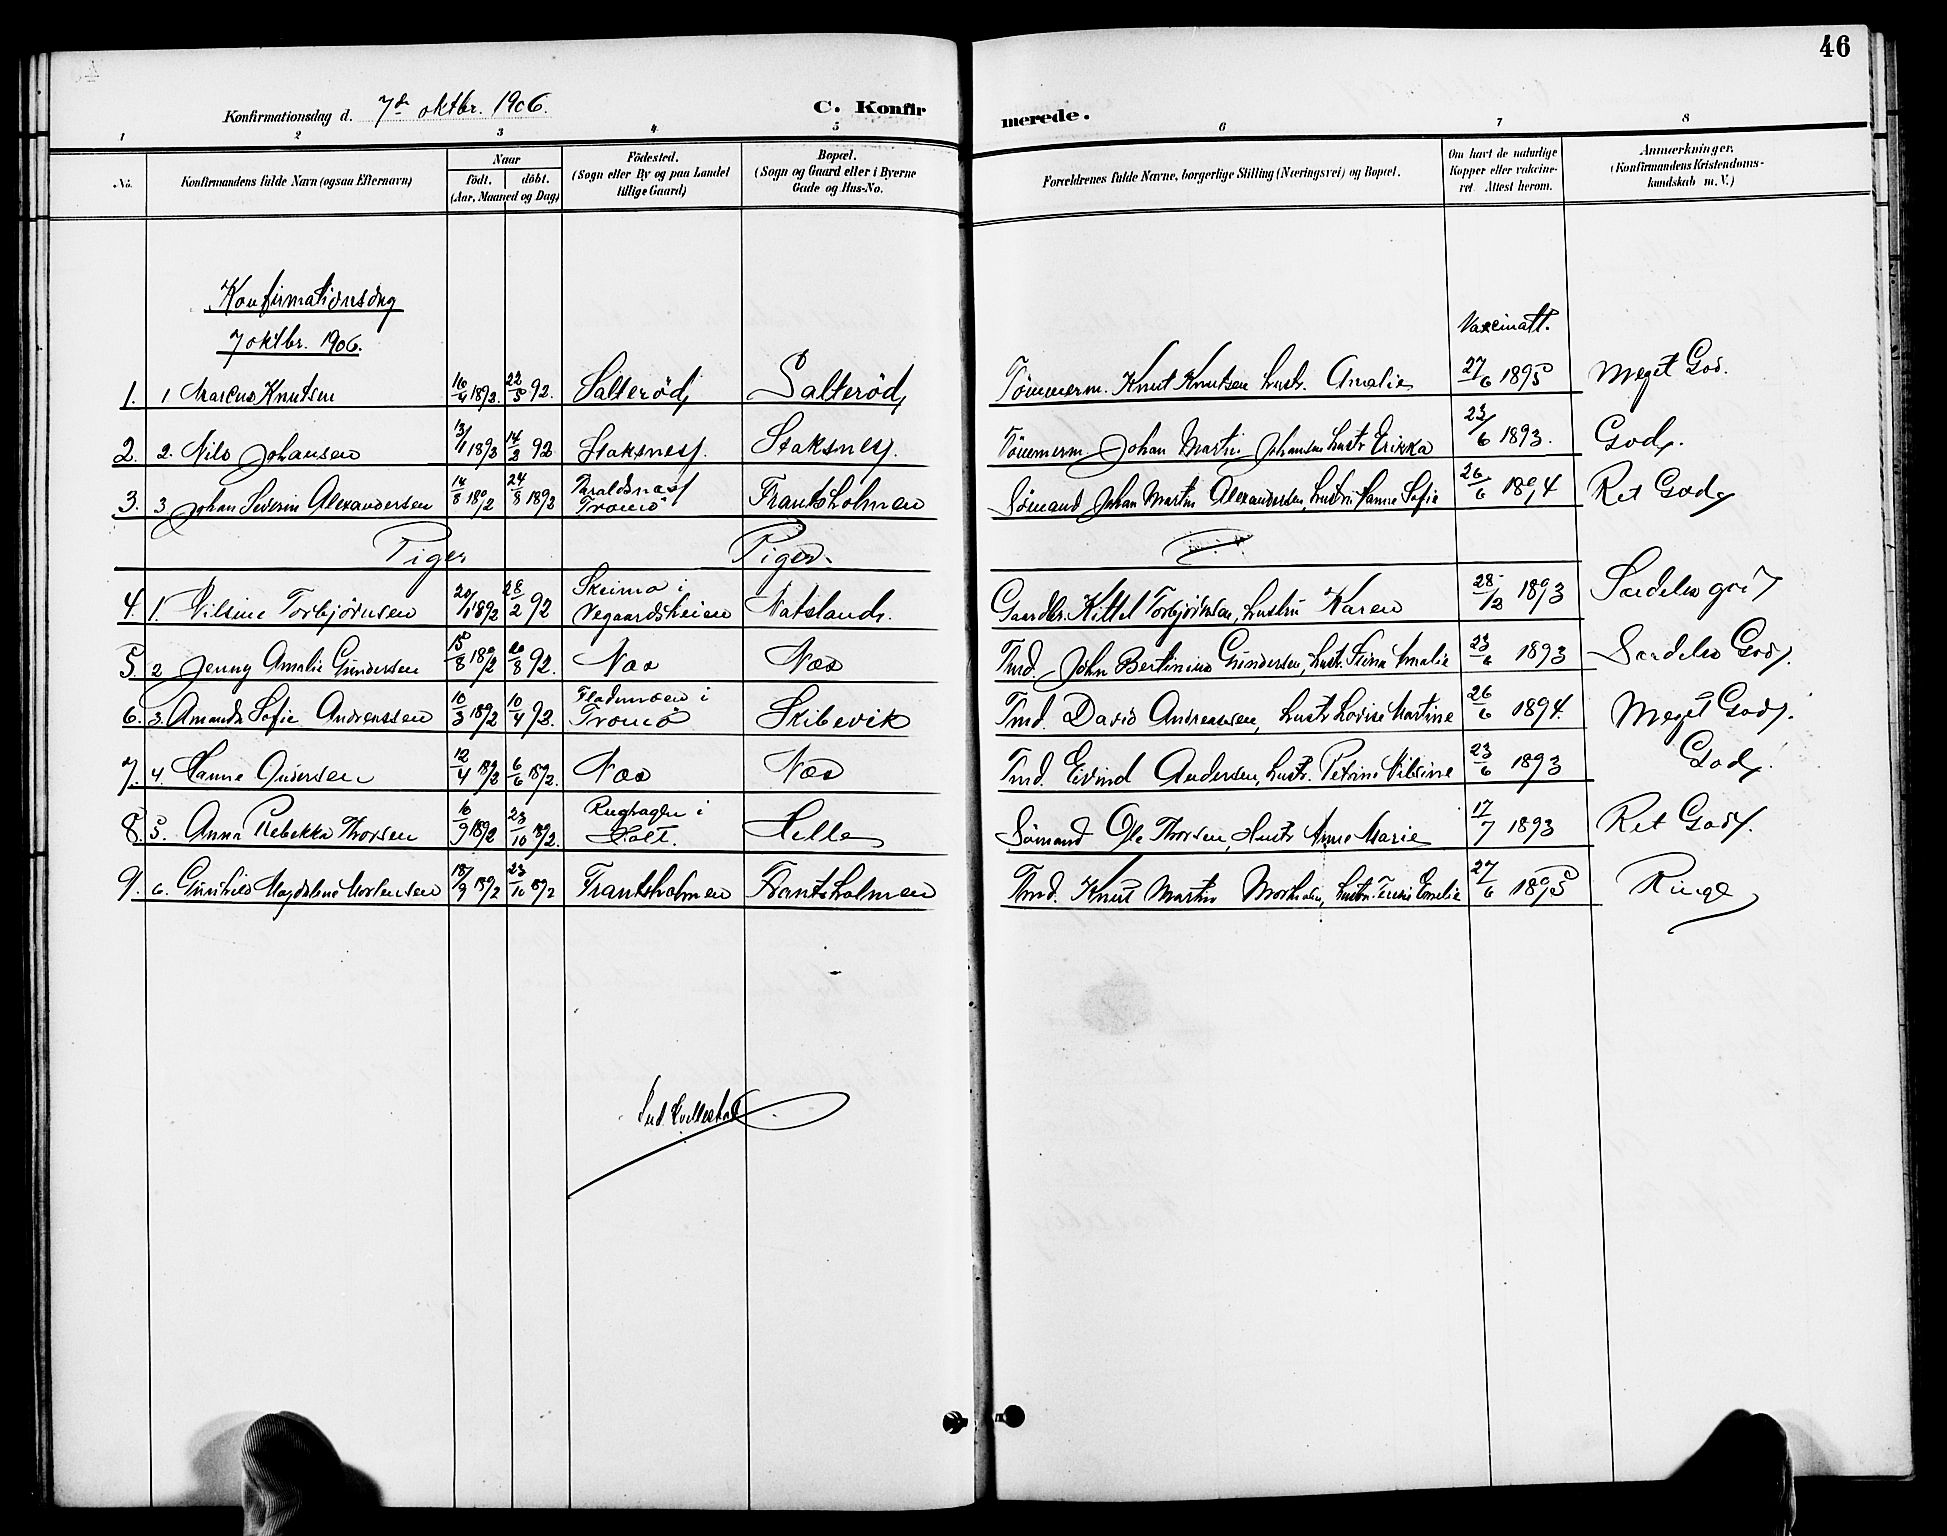 46
Konfirmationsdag d. 7de oktbr. 1906. C. Konfirmerede.
1 2 3 4 5 6 7 8
No. Konfirmandens fulde Navn (ogsaa Efternavn) Naar födt. döbt. (Aar, Maaned og Dag) Födested. (Sogn eller By og paa Landet tillige Gaard) Bopæl. (Sogn og Gaard eller i Byerne Gade og Hus-No. Forældrenes fulde Navne, borgerlige Stilling (Næringsvei) og Bopæl. Om havt de naturlige Kopper eller vakcineret. Attest herom. Anmærkninger. (Konfirmandens Kristendomskundskab m. V.)
Konfirmationsdag
7 oktbr. 1906.
Vaxcinatt.
1. 1 Marcus Knutsen 16/4 1892. 22/5 92. Salteröd, Salteröd, Tömmerm. Knut Knutsen Hustr. Amalie 27/6 1895 Meget God.
2. 2. Nils Johansen 13/1 1892 14/2 92 Staksnes. Staksnes. Tömmerm Johan Martin Johansen Hustr Erikka 23/6 1893. God.
3. 3 Johan Severin Alexandersen 14/8 1892 24/8 1892 Haraldsnæs Tromö Frantsholmen Sömand Johan Martin Alexandersen, Hustru Hanne Sofie 26/6 1894 Ret God
Piger Piger
4. 1. Nilsine Torbjörnsen 20/1 1892 28/2 92 Skeimo i Vegaardsheien Natsland. Gaardbr. Kittel Torbjörnsen, Hustru Karen 28/12 1893 Særdeles god
5. 2 Jenny Amalie Gundersen 15/8 1892 20/8 92. Næs Næs Tmd. John Bertinius Gundersen, Hustr. Stina Amalie 23/6 1893 Særdeles God.
6. 3. Amanda Sofie Andreassen 10/3 1892 10/4 92. Flademoen i Tromö Skibevik Tmd. David Andreassen, Hustr Lovise Martine 26/6 1894. Meget God.
7. 4. Hanne Andersen 12/4 1892 6/6 1892. Næs Næs Tmd. Eivind Andersen, Hustr. Petrine Nilsine 23/6 1893 God.
8. 5. Anna Rebekka Thorsen 16/9 1892 23/10 1892. Rughagen i Holt. Helle Sömand Ole Thorsen, Hustr Anne Marie 17/7 1893 Ret God.
9. 6. Gunhild Magdalene Mortensen 18/9 1892 23/10 1892 Frantsholmen Frantsholmen Tmd. Knut Martin Mortensen, Hustr. Emelie 27/6 1895 Ringe